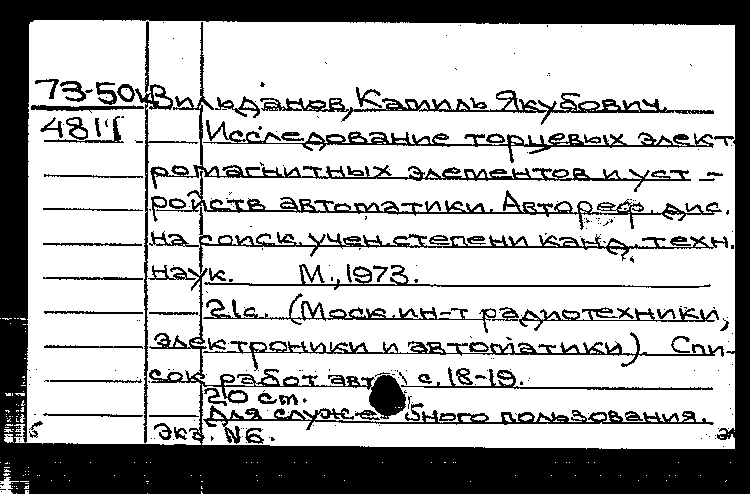 73-50к Вильданов, Камиль Якубович.
4811 Исследование торцевых элект
ромагнитных элементов и уст -
ройств автоматики. Автореф. дис.
на соиск. учен. степени канд. техн.
наук. М., 1973.
21с. (Моск. ин-т радиотехники,
электроники и автоматики). Спи-
сок работ авт с. 18-19.
20 см.
Для служебного пользования.
экз. №6.